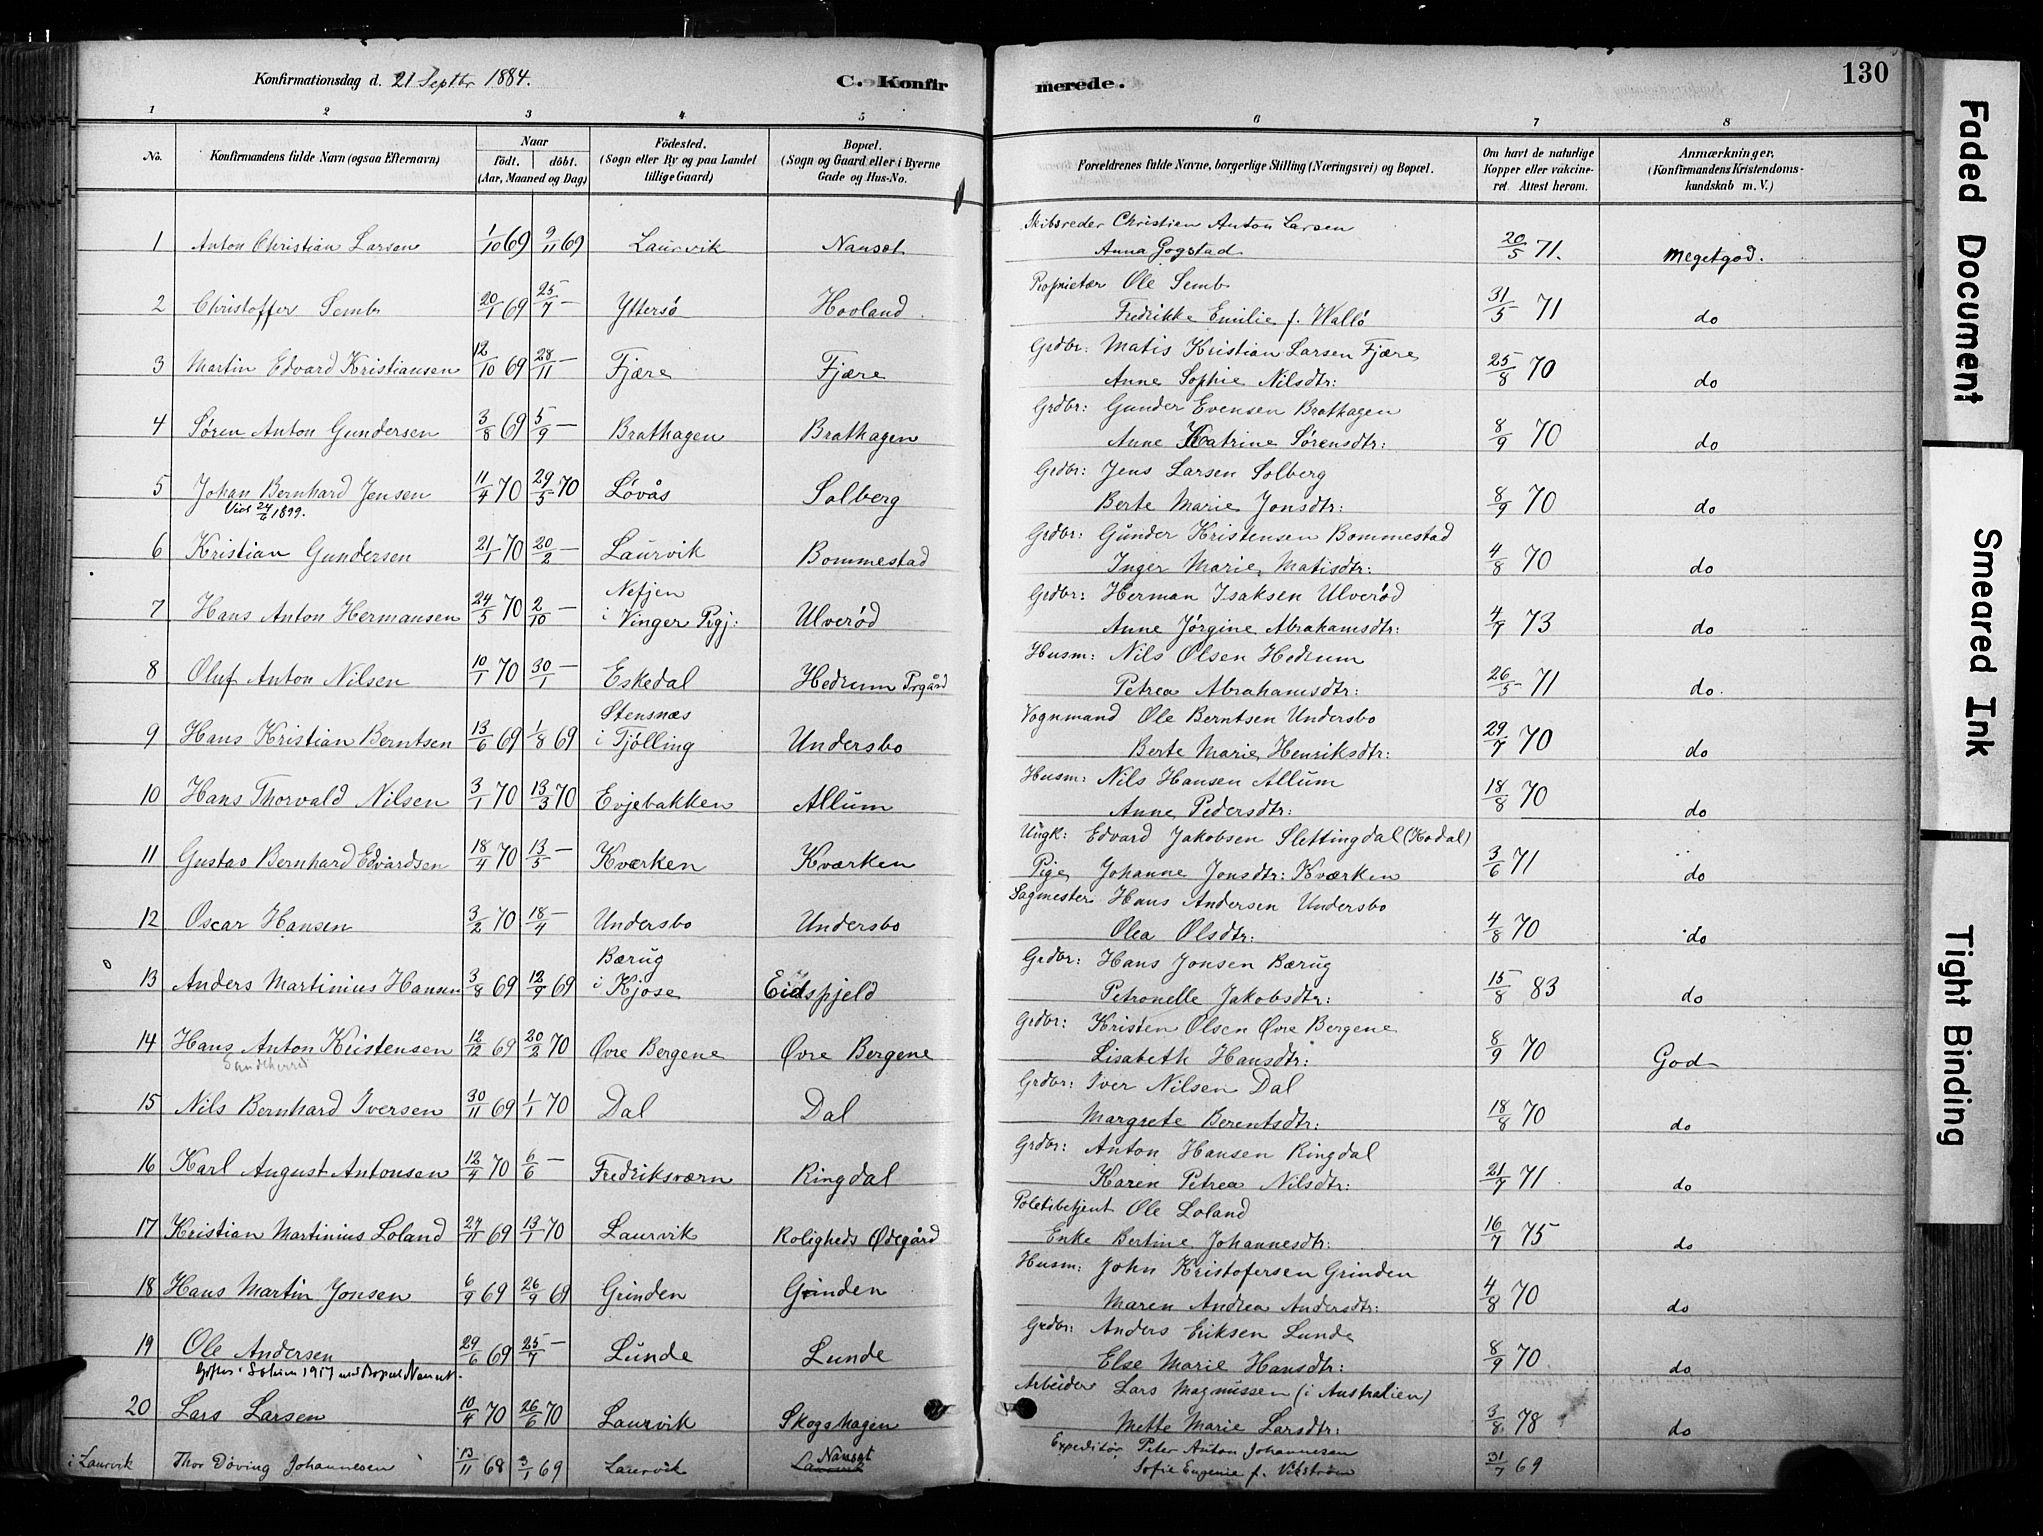 Konfirmationsdag d. 21 Septbr 1884.
C. Konfir
merede.
130
1 2 3 4 5 6 7 8
No.
Konfirmandens fulde Navn (ogsaa Efternavn)
Naar
födt. döbt.
(Aar, Maaned og Dag)
Födested.
(Sogn eller By og paa Landet
tillige Gaard)
Bopæl.
(Sogn og Gaard eller i Byerne
Gade og Hus-No.
Forældrenes fulde Navne, borgerlige Stilling (Næringsvei) og Bopæl.
Om havt de naturlige
Kopper eller vakcine-
ret. Attest herom.
Anmærkninger.
(Konfirmandens Kristendoms-
kundskab m. V.)
Skibsreder Christien Anton Larsen
1 Anton Christian Larsen 1/10 69 9/11 69 Laurvik Nanset Anna Gogstad 20/5 71. Megetgod.
Proprietær Ole Semb
2 Christoffer Semb 20/1 69 25/7 — Yttersø Hovland Fredrikke Emilie f. Wallö 31/5 71 do
Grdbr: Matis Kristian Larsen Fjære
3 Martin Edvard Kristiansen 12/10 69 28/11 — Fjære Fjære Anne Sophie Nilsdtr: 25/8 70 do
Grdbr: Gunder Evensen Brathagen
4 Søren Anton Gundersen 3/8 69 5/9 — Brathagen Brathagen Anne Katrine Sørensdtr: 8/9 70 do
Grdbr: Jens Larsen Solberg
5 Johan Bernhard Jensen 11/4 70 29/5 70 Løvås Solberg Berte Marie Jonsdtr: 8/9 70 do
Vid 24/6 1899.
Grdbr: Gunder Kristensen Bommestad
6 Kristian Gundersen 21/1 70 20/2 — Laurvik Bommestad Inger Marie Matisdtr: 4/8 70 do
Nefjen Grdbr: Herman Isaksen Ulverød
7 Hans Anton Hermansen 24/5 70 2/10 — i Vinger Pgj: Ulverød Anne Jørgine Abrahamsdtr: 4/7 73 do
Husm: Nils Olsen Hedrum
8 Oluf Anton Nilsen 10/1 70 30/1 — Eskedal Hedrum Prgård Petrea Abrahamsdtr: 26/5 71 do.
Stensnæs Vognmand Ole Berntsen Undersbo
9 Hans Kristian Berntsen 13/6 69 1/8 69 i Tjølling Undersbo Berte Marie Henriksdtr: 29/7 70 do
Husm: Nils Hansen Allum
10 Hans Thorvald Nilsen 3/1 70 13/3 70 Evjebakken Allum Anne Pedersdtr: 18/8 70 do
Ungk: Edvard Jakobsen Slettingdal (Kodal)
11 Gustav Bernhard Edvardsen 18/4 70 13/5 — Kværken Kværken Pige Johanne Jonsdtr: Kværken 3/6 71 do
Sagmester Hans Andersen Undersbo
12 Oscar Hansen 3/2 70 18/4 — Undersbo Undersbo Olea Olsdtr: 4/8 70 do
Bærug Grdbr: Hans Jonsen Bærug
13 Anders Martinius Hansen 3/8 69 12/9 69 i Kjose Eidsfjeld Petronelle Jakobsdtr: 15/8 83 do
Grdbr: Kristen Olsen Øvre Bergene
14 Hans Anton Kristensen 12/12 69 20/2 70 Øvre Bergene Øvre Bergene Lisabeth Hansdtr: 8/9 70 God
Sandeherred
Grdbr: Iver Nilsen Dal
15 Nils Bernhard Iversen 30/11 69 1/1 70 Dal Dal Margrete Berentsdtr: 18/8 70 do
Grdbr: Anton Hansen Ringdal
16 Karl August Antonsen 12/4 70 6/6 — Fredriksværn Ringdal Karen Petrea Nilsdtr: 21/7 71 do
Poletibetjent Ole Loland
17 Kristian Martinius Loland 24/11 69 13/1 70 Laurvik Roligheds Ødegård Enke Bertine Johannesdtr: 16/7 75 do
Husm: John Kristofersen Grinden
18 Hans Martin Jonsen 6/9 69 26/9 69 Grinden Grinden Maren Andrea Andersdtr: 4/8 70 do
Grdbr: Anders Eriksen Lunde
19 Ole Andersen 29/6 69 25/7 — Lunde Lunde Else Marie Hansdtr: 8/9 70 do
1917 med Bopæl Nanset.
Arbeider Lars Magnussen (i Australien)
20 Lars Larsen 10/4 70 26/6 70 Laurvik Skogshagen Mette Marie Larsdtr: 3/8 78 do
Nanset Expeditör Peter Anton Johannesen
i Laurvik Thor Döving Johannesen 13/11 68 3/1 69 Laurvik Sofie Eugenie f. Vikström 31/7 69
Faded Document
Smeared Ink
Tight Binding